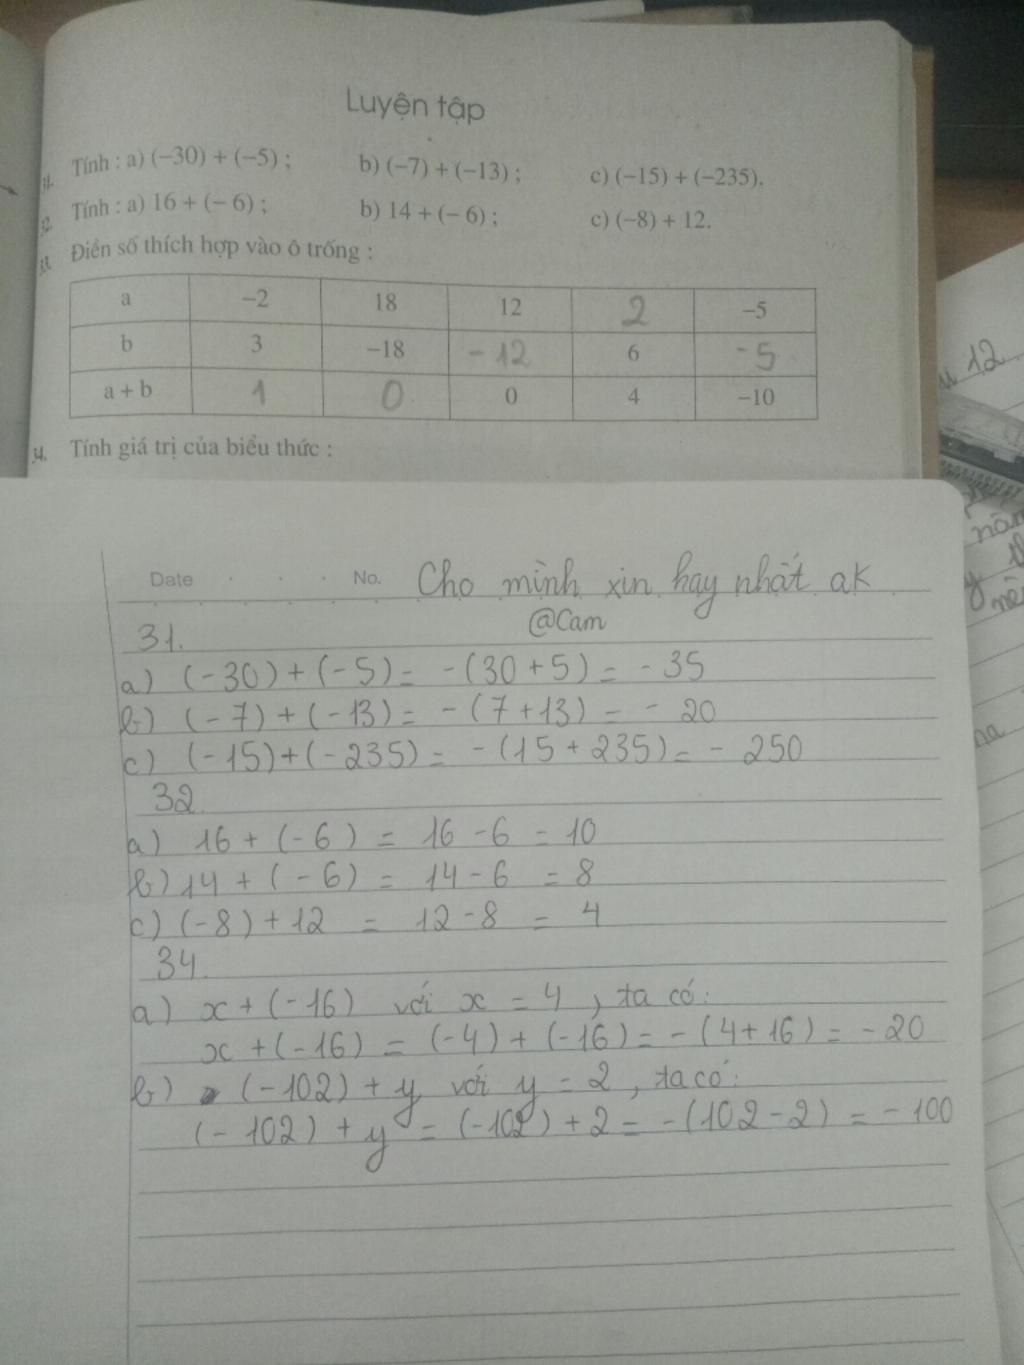 Luyện tập
31. Tính : a) (−30) + (−5) ; b) (−7) + (−13) ; c) (−15) + (−235).
32. Tính : a) 16 + (− 6) ; b) 14 + (− 6) ; c) (−8) + 12.
33. Điền số thích hợp vào ô trống :
a −2 18 12 2 −5
b 3 −18 -12 6 -5
a + b 1 0 0 4 −10
34. Tính giá trị của biểu thức :
12
Date . . . No. Cho mình xin hay nhất ak
@Cam
31.
a) (-30) + (-5) = -(30+5) = - 35
b) (-7) + (-13) = -(7+13) = - 20
c) (-15)+(-235) = -(15 + 235) = - 250
32.
a) 16 + (-6) = 16 - 6 = 10
b) 14 + (-6) = 14 - 6 = 8
c) (-8) + 12 = 12 - 8 = 4
34.
a) x + (-16) với x = 4, ta có:
x + (-16) = (-4) + (-16) = -(4+16) = - 20
b) (-102) + y với y = 2, ta có:
(- 102) + y = (-102) + 2 = -(102-2) = - 100